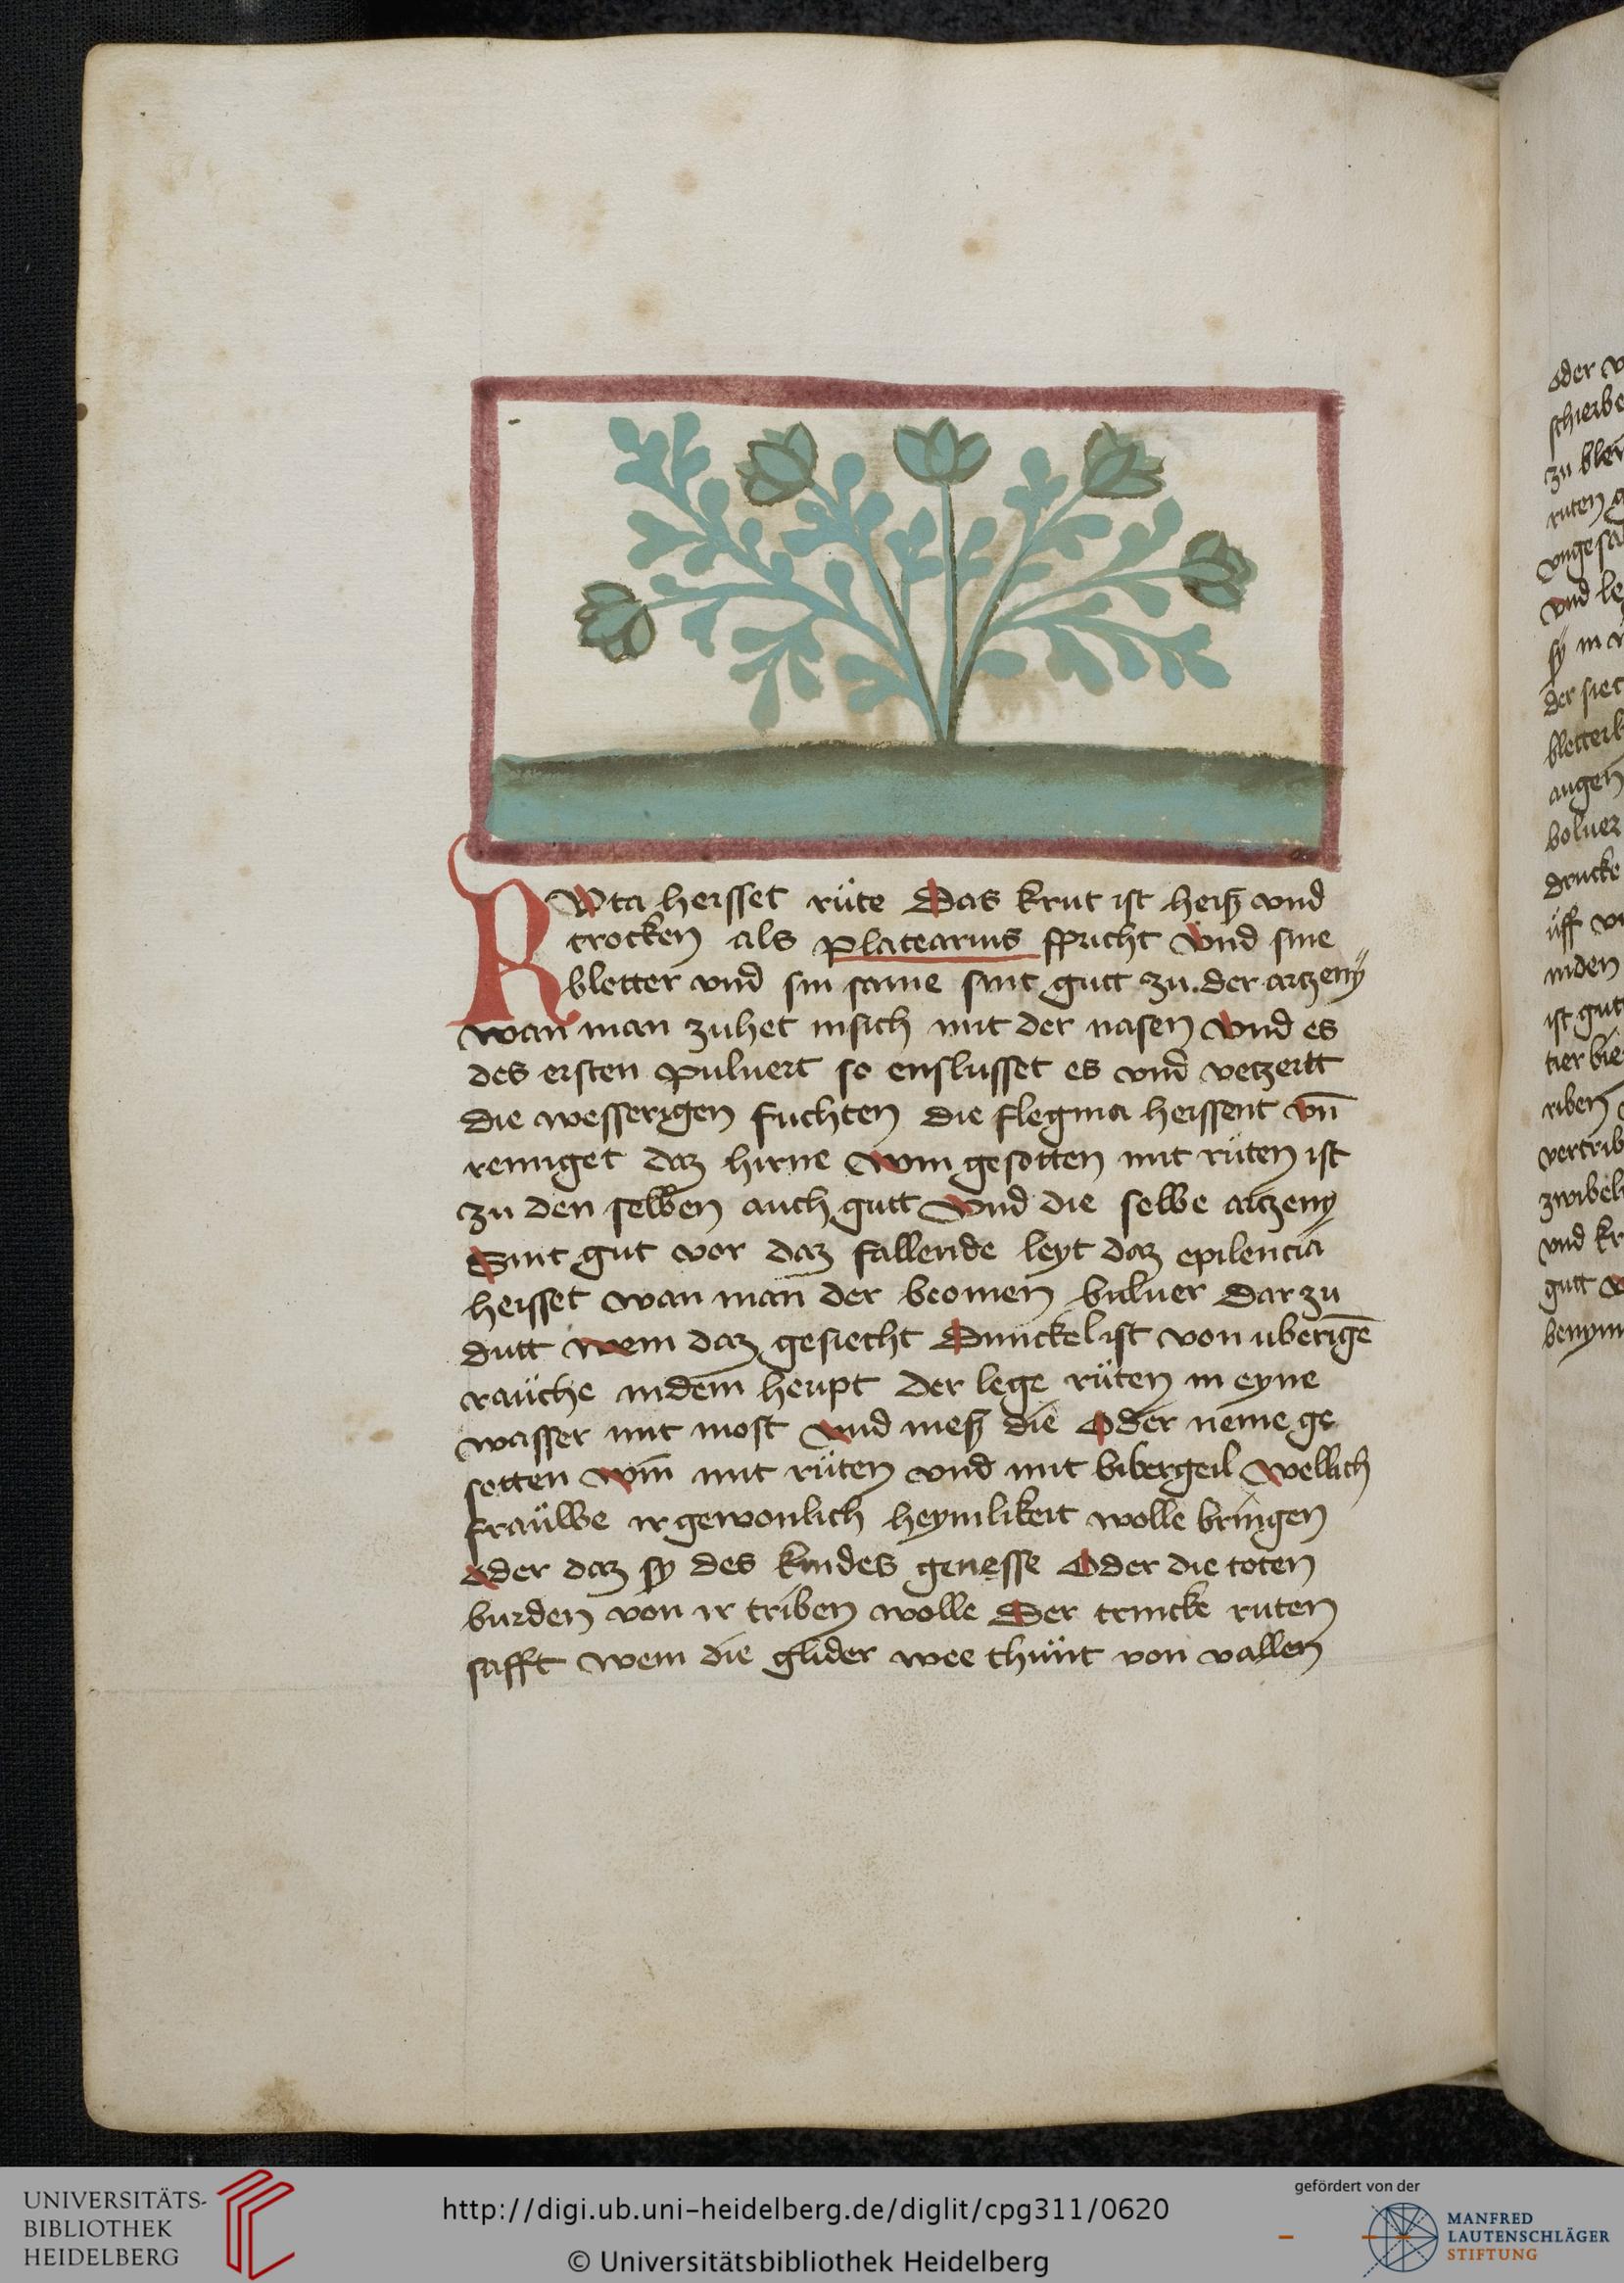 RWta heisset rüte Das krut ist heiß vnd
trocken als platearius spricht Vnd sine
bletter vnd sin same sint gutt zu der artzeny
wan man zuhet insich mit der nasen Vnd es
des ersten puluert so enslusset es vnd vetzertt
die wesserigen fuchten die flegma heissent vn̄
reniget daz hirne Win gesotten mit rüten ist
zu den selben auch gutt Vnd die selbe artzeny
Sint gut vor daz fallende leyt daz epilencia
heisset wan man der beomen buluer dar zu
dutt wem daz gesiecht Dunckel ist von uberigē
rauche in dem heupt der lege rüten in eyne
wasser mit most Vnd meß die Oder neme ge
sotten win mit rüten vnd mit bibergeil Wellich
fraüwe ir gewonlich heymlikeit wolle bringen
Oder daz sy des kindes genesse Oder die toten
burden von ir triben wolle Der trincke ruten
safft wem die glider wee thünt von vallen
oder
zu
ruten
vnd
sy in
der
augen
drucke
üff
inden
ist gut
riben
vnd
gutt
UNIVERSITÄTS-
BIBLIOTHEK
HEIDELBERG
http://digi.ub.uni-heidelberg.de/diglit/cpg311/0620
© Universitätsbibliothek Heidelberg
gefördert von der
MANFRED
LAUTENSCHLÄGER
STIFTUNG